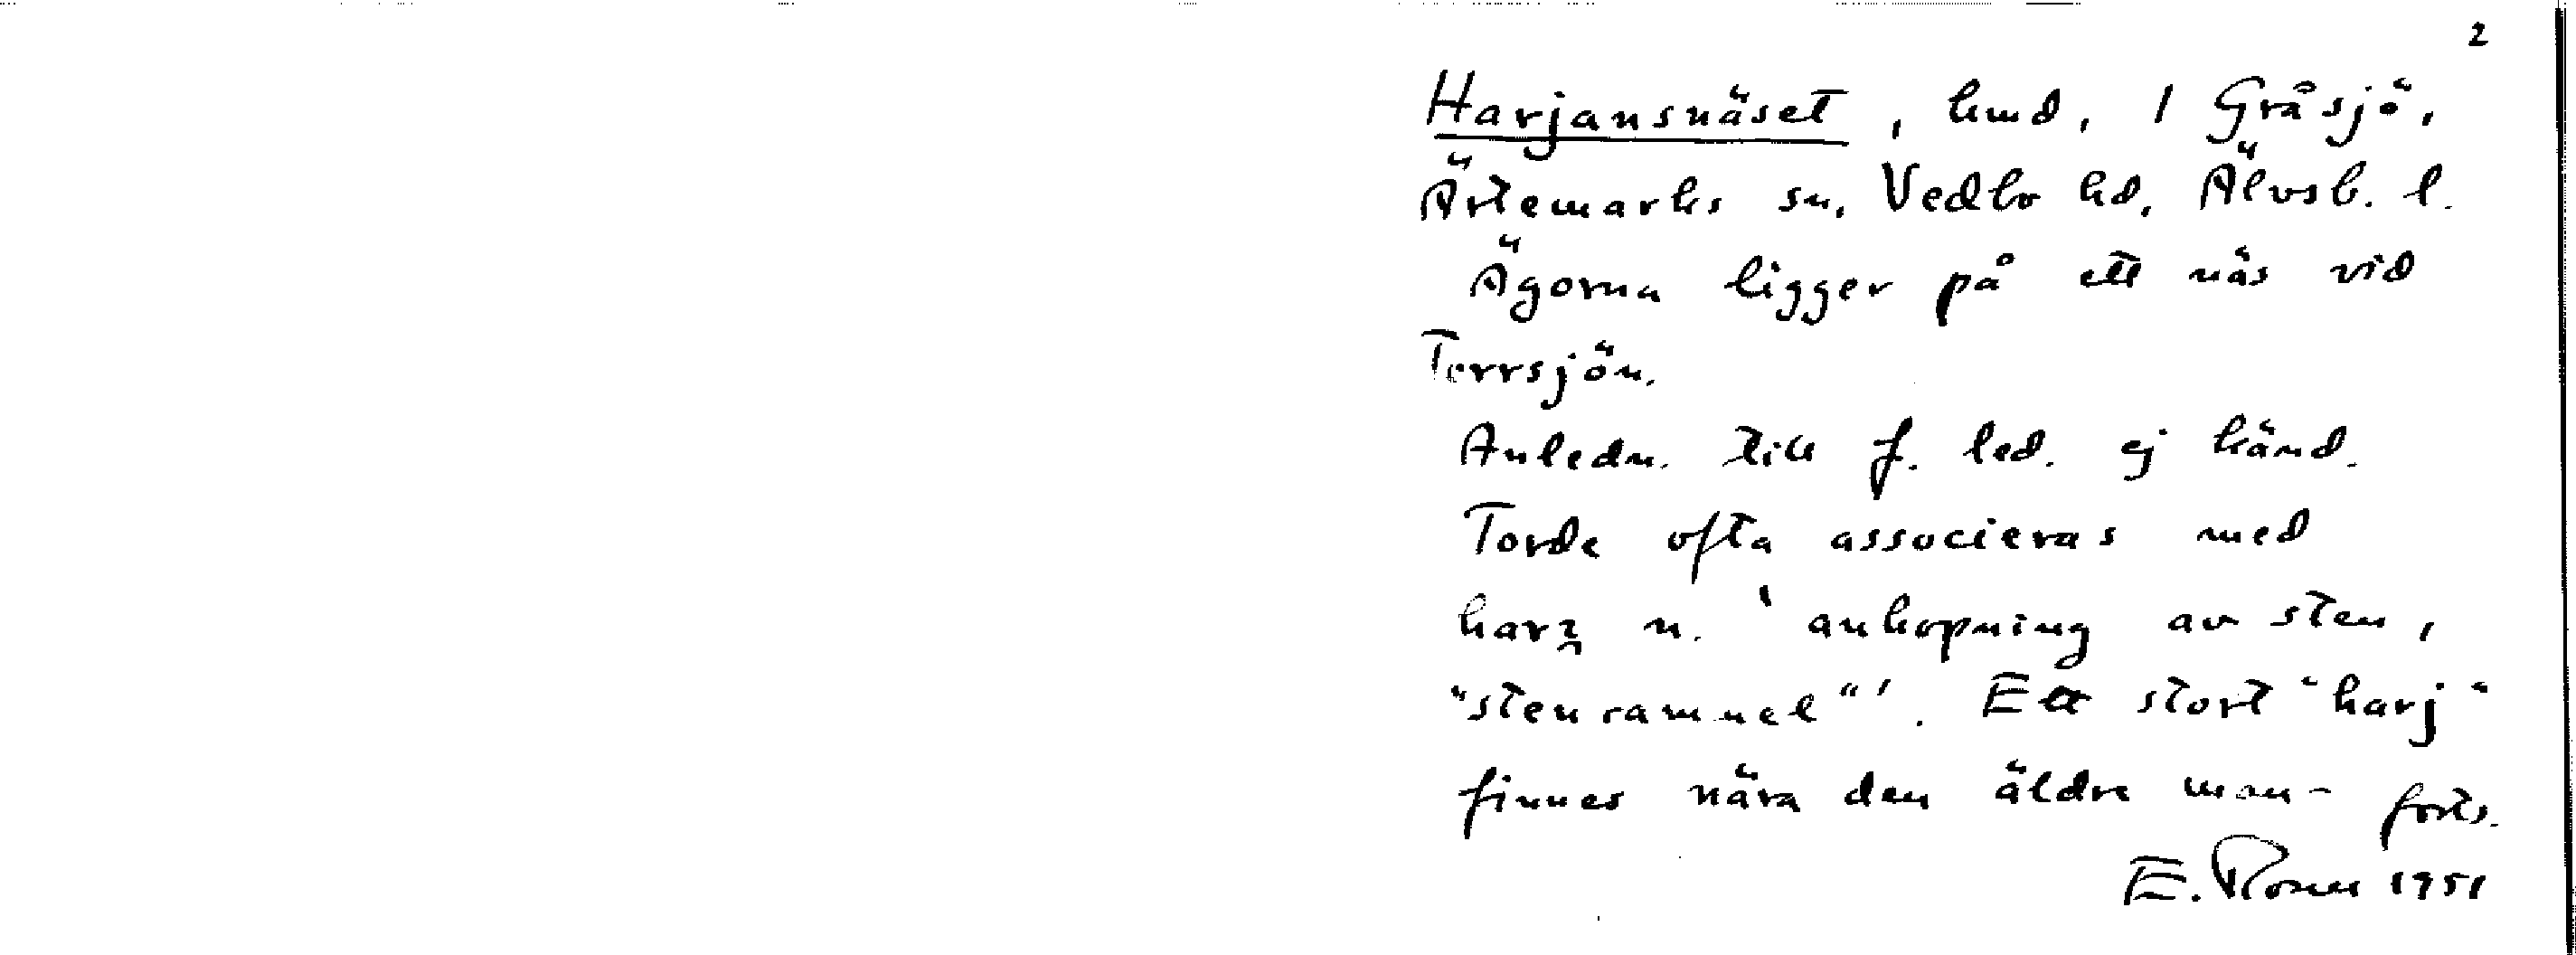 2
Harjansnäset, hmd, 1 Gråsjö,
Ärtemarks sn, Vedbo hd, Älvsb. l.
Ägorna ligger på ett näs vid
Terrsjön.
Anledn. till f. led. ej känd.
Torde ofta associeras med
harʒ n. 'anhopning av sten,
"stenrammel"'. Ett stort "harj"
finnes nära den äldre man- forts.
E. 1951